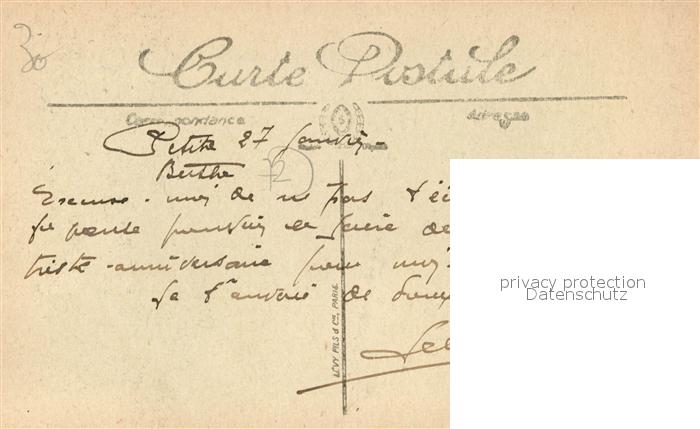 30
Carte Postale
Correspondance
Adresse
Petite 27 Janvier -
Berthe
72
Excuse - moi de ne pas t'éc
Je pense pouvoir le faire de
triste anniversaire pour moi.
Je t'envoie de
LÉVY FILS & Cie, PARIS
privacy protection
Datenschutz